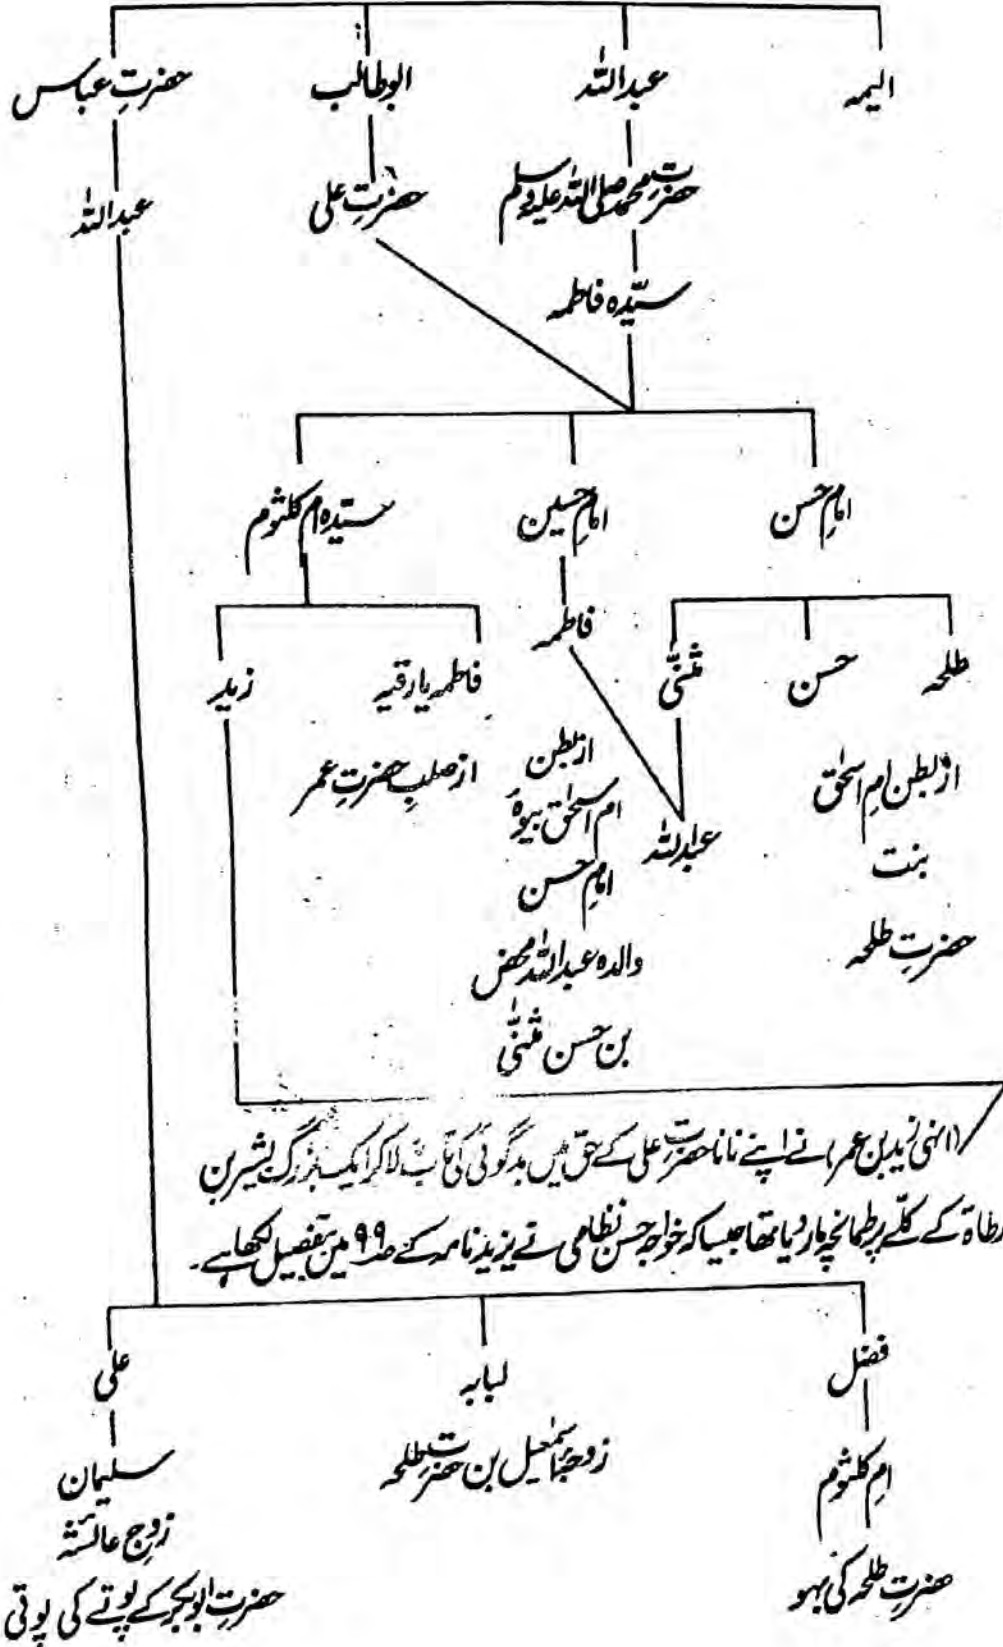 الیمہ عبداللہ ابوطالب حضرتِ عباس
حضرت محمد صلی اللہ علیہ وسلم حضرتِ علی عبداللہ
سیّدہ فاطمہ
امامِ حسن امامِ حسین سیّدہ ام کلثوم
فاطمہ
طلحہ حسن مثنّٰی فاطمہ یا رقیہ زید
از بطن امِ اسحٰق
بنت
حضرتِ طلحہ
عبداللہ
از بطن
ام اسحٰق بیوۂ
امامِ حسن
والدہ عبداللہ محض
بن حسن مثنّٰی
از صلبِ حضرتِ عمر
(انہی زید بن عمر) نے اپنے نانا حضرت علی کے حق میں بدگوئی کی تاب نہ لا کر ایک بزرگ بشیر بن
ارطاۃ کے کلّے پر طمانچہ مار دیا تھا جیسا کہ خواجہ حسن نظامی نے یزید نامہ کے صہ ۹۹ میں بتفصیل لکھا ہے۔
فضل لبابہ علی
امِ کلثوم زوجہ اسمٰعیل بن حضرت طلحہ سلیمان
زوج عائشہ
حضرتِ طلحہ کی بہو حضرتِ ابوبکر کے پوتے کی پوتی